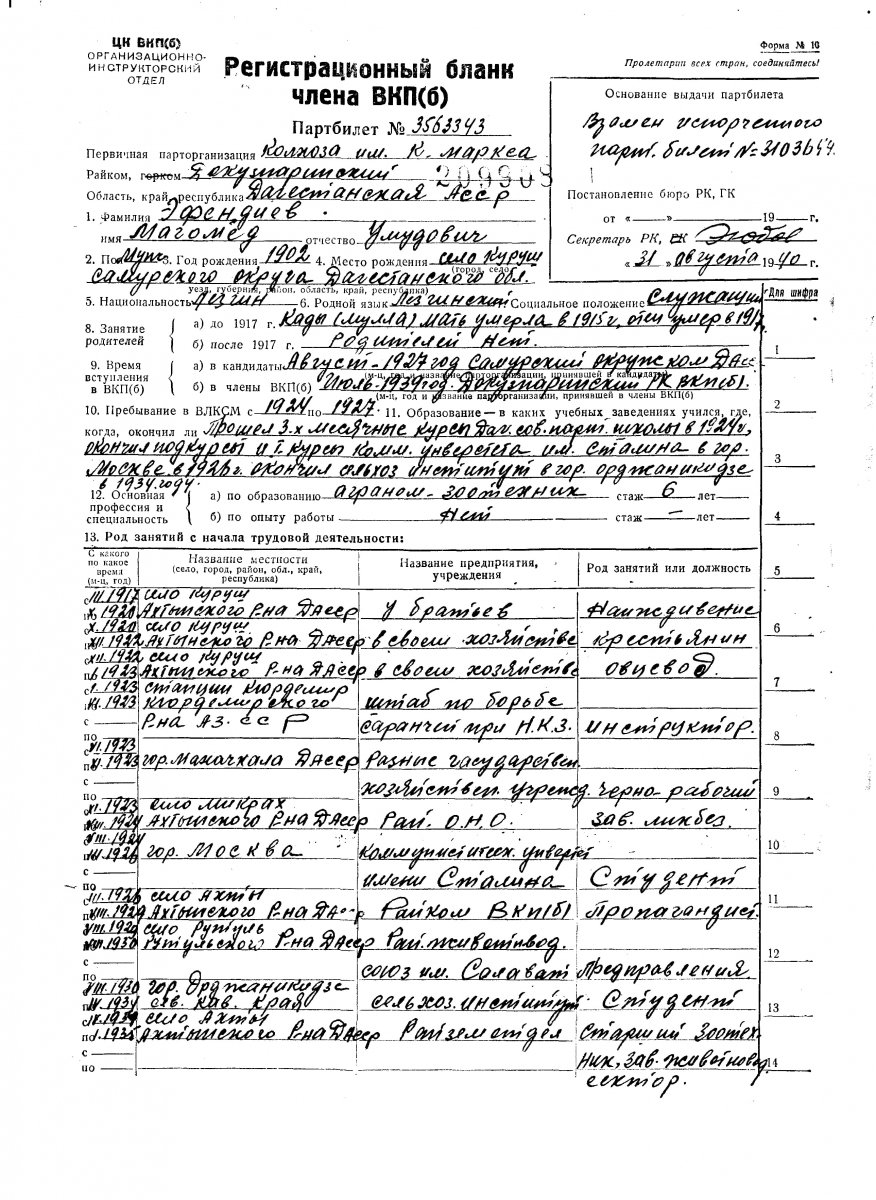 ЦК ВКП(б)
ОРГАНИЗАЦИОННО-
ИНСТРУКТОРСКИЙ
ОТДЕЛ
Форма № 10
Пролетарии всех стран, соединяйтесь!
Регистрационный бланк
члена ВКП(б)
Партбилет № 3563343
Основание выдачи партбилета
Взамен испорченного
парт. билет №=3103644.
Первичная парторганизация Колхоза им. К. Маркса
Райком, горком Докузпаринский
209903
Область, край, республика Дагестанская АССР
Постановление бюро РК, ГК
от «—»—19—г.
Секретарь РК, ГК
«31» августа 1940 г.
1. Фамилия Эфендиев
имя Магомед отчество Умудович
2. Пол Муж 3. Год рождения 1902 4. Место рождения село Куруш
(город, село,
Самурского округа Дагестанской обл.
уезд, губерния, район, область, край, республика)
5. Национальность Лезгин 6. Родной язык Лезгинский Социальное положение Служащий
Для шифра
8. Занятие родителей
а) до 1917 г. Кады (мулла) мать умерла в 1915 г, отец умер в 1917
б) после 1917 г. Родителей нет.
9. Время вступления в ВКП(б)
а) в кандидаты Август-1927 год Самурский окружком ДАСС
(м-ц, год и название парторганизации, принявшей в кандидаты)
б) в члены ВКП(б) Июль-1939 год. Докузпаринский РК ВКП(б).
(м-ц, год и название парторганизации, принявшей в члены ВКП(б)
10. Пребывание в ВЛКСМ с 1924 по 1927. 11. Образование — в каких учебных заведениях учился, где,
когда, окончил ли Прошел 3-х месячные курсы Даг. сов. парт. школы в 1924 г,
окончил подкурсы и I курсы комм. унверстета им. Сталина в гор.
Москве в 1926 г. окончил сельхоз институт в гор. орджаникидзе
в 1934 году.
12. Основная профессия и специальность
а) по образованию аграном-зоотехник стаж 6 лет
б) по опыту работы Нет стаж — лет
13. Род занятий с начала трудовой деятельности:
С какого по какое время (м-ц, год)
Название местности (село, город, район, обл., край, республика)
Название предприятия, учреждения
Род занятий или должность
с III.1917 село Куруш
по X.1920 Ахтынского Р-на ДАССР У братьев Наиждивение
с X.1920 село Куруш
по XII.1922 Ахтынского Р-на ДАССР в своем хозяйстве крестьянин
с XII.1922 село Куруш
по 1923 Ахтынского Р-на ДАССР в своем хозяйстве овцевод.
1923 станции Кюрдемир
1923 Кюрдемирского штаб по борьбе
с
по
Р-на АЗ. ССР саранчей при Н.К.З. инструктор.
с VI.1923
по XI.1923 гор. Махачкала ДАССР Разные гасударствен.
с
по
хозяйствен. учрежд. черно-рабочий
XI.1923 село Миkрах
VIII.1924 Ахтынского Р-на ДАССР Рай. О.Н.О. Зав. ликбез.
VIII.1924
1926 гор. Москва Коммунистическ. унверстет
с
по
имени Сталина Студент
1926 село Ахты
VIII.1929 Ахтынского Р-на ДАССР Райком ВКП(б) Пропагандист.
VIII.1929 село Рутуль
VIII.1930 Рутульского Р-на ДАССР Рай.животновод.
с
по
союз им. Салават Предправления.
VIII.1930 гор. Орджаникидзе
IV.1934 сев. Кав. Края сельхоз. институт Студент
1934 село Ахты
1935 Ахтынского Р-на ДАССР Райземотдел Старший зоотех-
с
по
ник, зав. животновод
сектор.
1
2
3
4
5
6
7
8
9
10
11
12
13
14